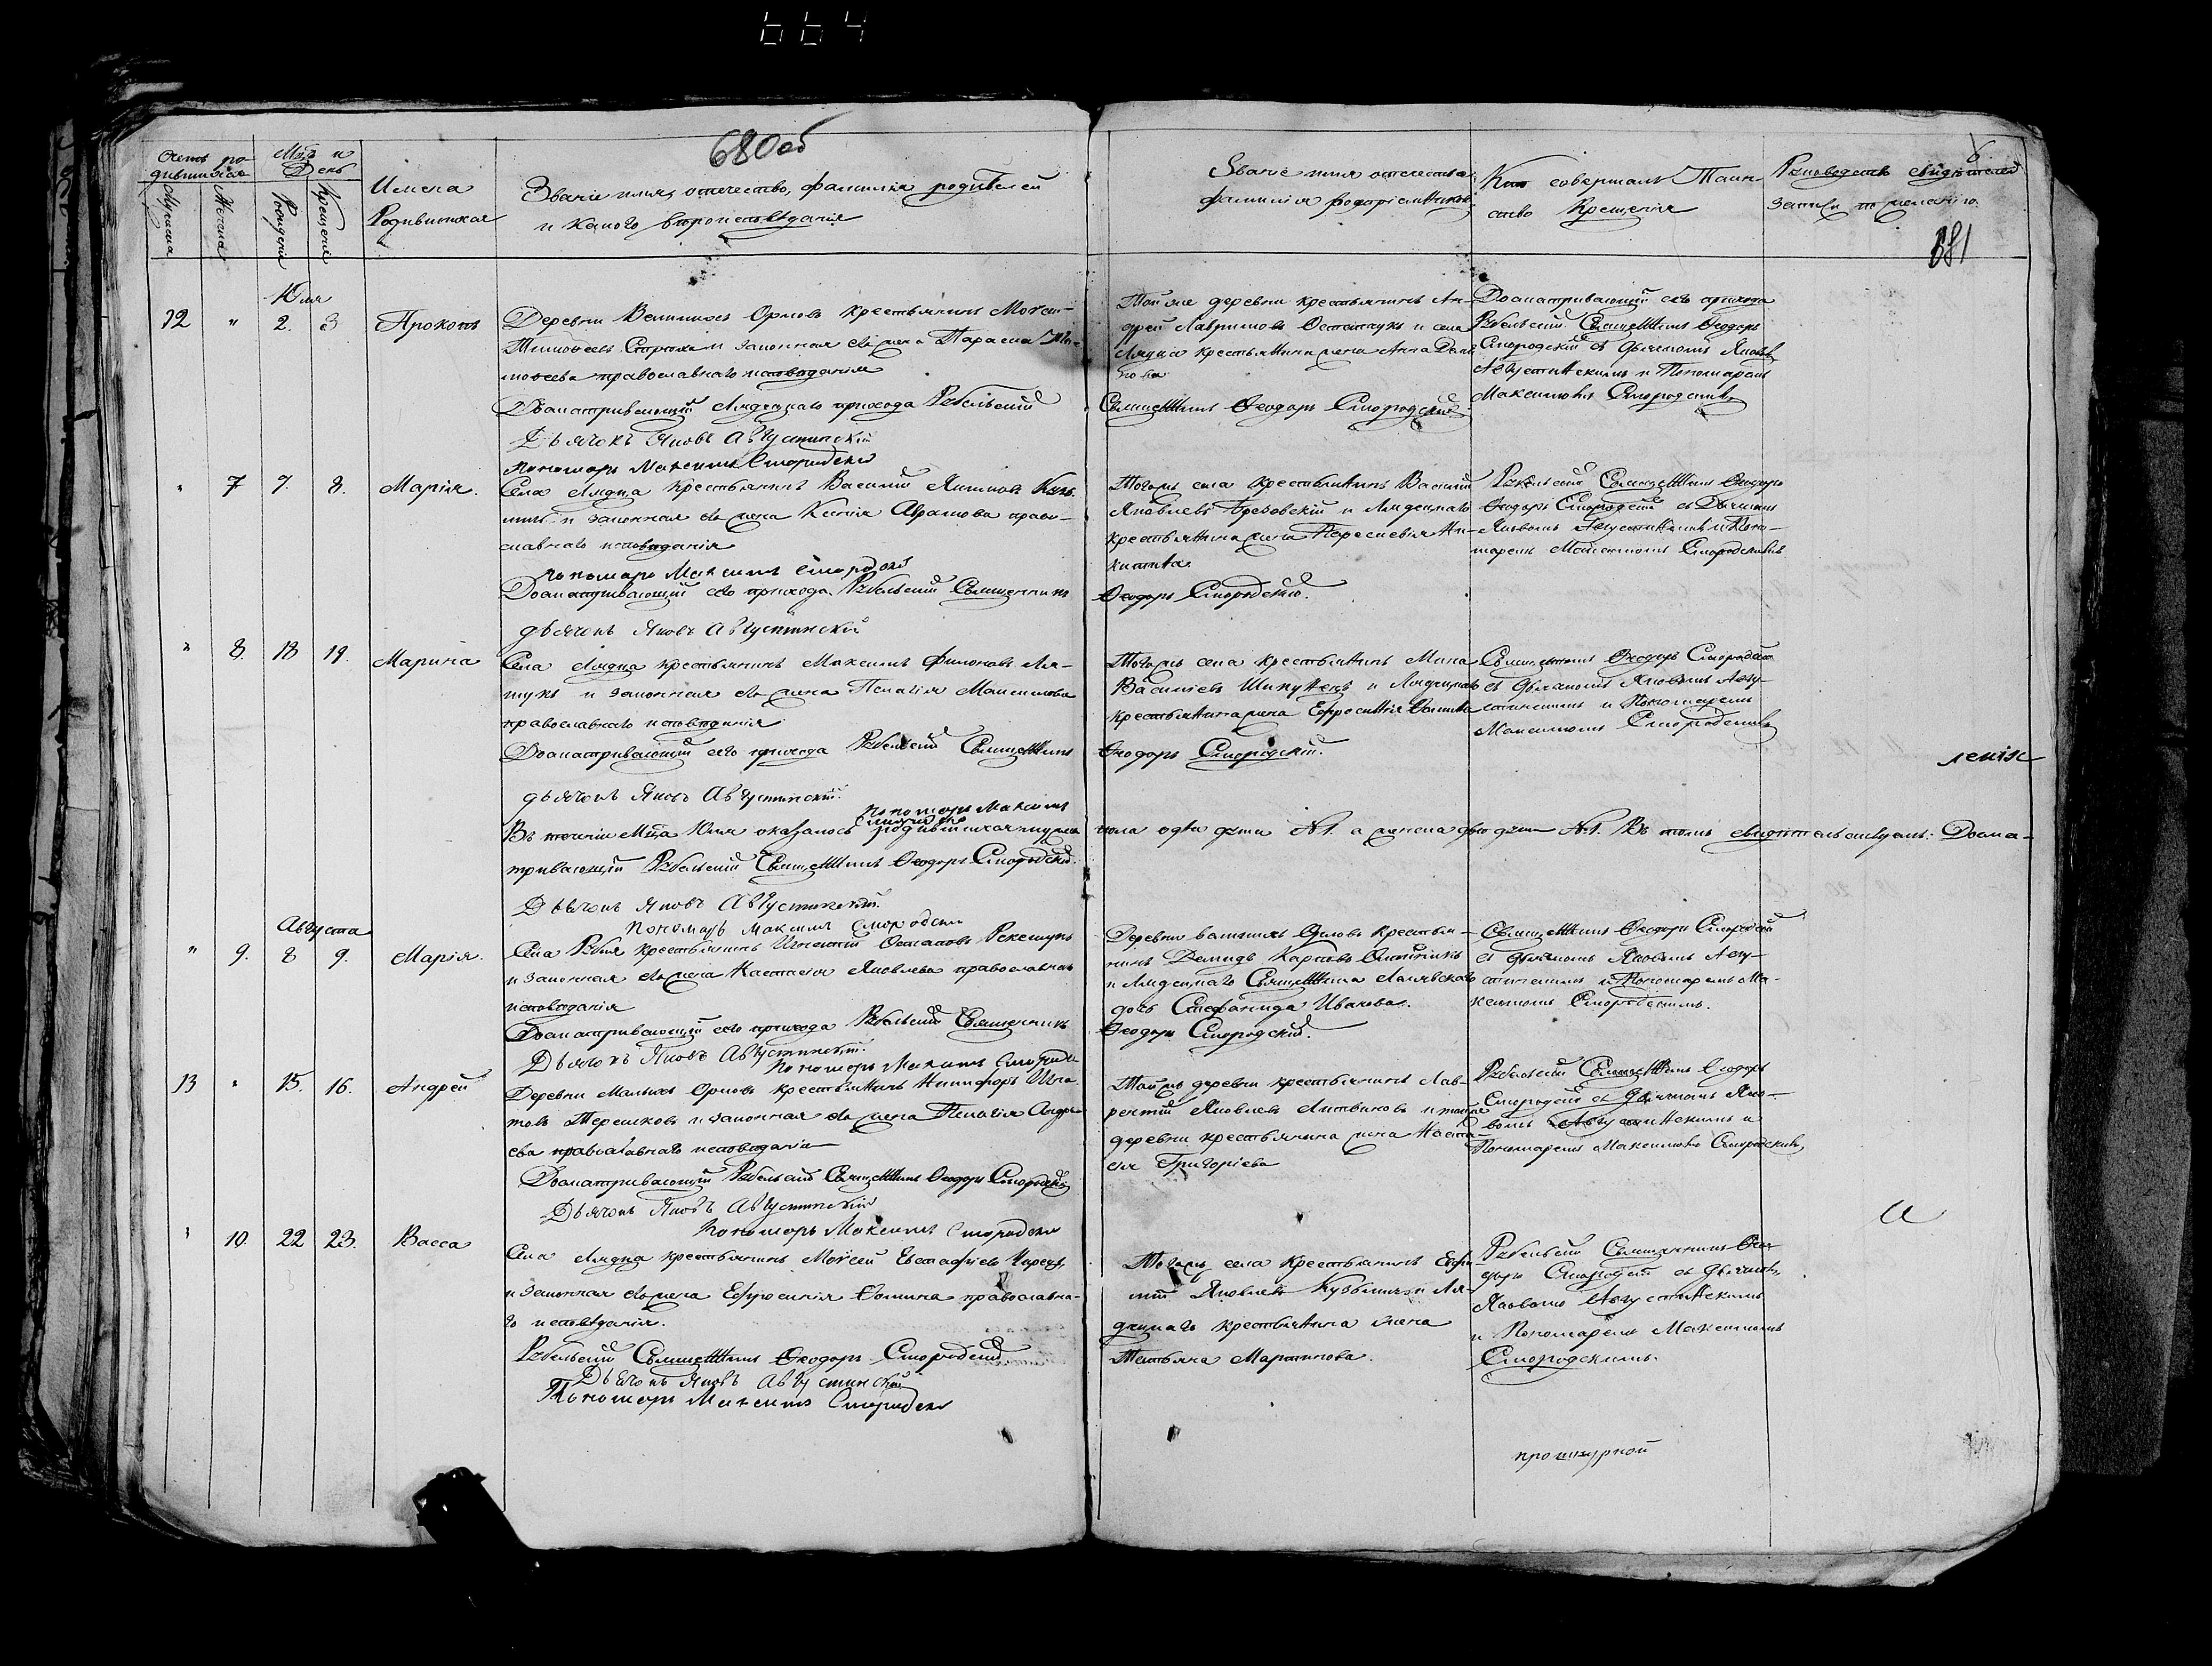 664
680об
6
681
Счетъ ро-
дившихся
Мужеска
Женска
Мцъ и
День
Рожденія
Крещенія
Имена
Родившихся
Званіе имя, отечество, фамилія родителей
и какого вѣроисповѣданія
Званіе имя отечество
фамилія воспріемниковъ
Кто совершалъ Таин-
ство Крещенія
Рукоприкладство свидѣтелей
записи по желанію
Іюля
12 " 2. 3 Прокопъ
Деревни Великихъ Орловъ крестьянинъ Моѵсей
Тимоѳеевъ и законная его жена Параскева
моѳеева православнаго исповѣданія
Досматривающій Лядецкаго прихода Рубельскій
Священникъ Ѳеодоръ Смородскій
Дьячокъ Яковъ Августинскій
пономарь Максимъ Смородскій
Той же деревни крестьянинъ Ан-
дрей Лавриновъ и села
Лядца крестьянина жена Анна
Досматривающій сего прихода
Рубельскій Священникъ Ѳеодоръ
Смородскій съ дьячкомъ Яковомъ
Августинскимъ и Пономаремъ
Максимомъ Смородскимъ
" 7 7. 8. Марія.
Села Лядца крестьянинъ Василій Якимовъ Кузь-
мичъ и законная его жена Ксенія Абрамова право-
славнаго исповѣданія
пономарь Максимъ Смородскій
Досматривающій сего прихода Рубельскій Священникъ
Ѳеодоръ Смородскій.
дьячокъ Яковъ Августинскій
Тогожъ села крестьянинъ Василій
Яковлевъ и Лядецкаго
крестьянина жена Параскевія Ни-
китина
Рубельскій Священникъ Ѳеодоръ
Ѳеодоръ Смородскій съ Дьячкомъ
Яковомъ Августинскимъ и Поно-
маремъ Максимомъ Смородскимъ
" 8. 18 19. Марина
Села Лядца крестьянинъ Максимъ Филоновъ Ля-
шукъ и законная его жена Пелагія Максимова
православнаго исповѣданія
Досматривающій сего прихода Рубельскій Священникъ
Ѳеодоръ Смородскій.
дьячокъ Яковъ Августинскій.
пономарь Максимъ
Смородскій
Тогожъ села крестьянинъ Мина
Василіевъ и Лядецкаго
крестьянина жена Ефросинія Ѳомина
Священникъ Ѳеодоръ Смородскій
съ дьячкомъ Яковомъ Авгу-
стинскимъ и Пономаремъ
Максимомъ Смородскимъ
Въ теченіи Мца Іюля оказалось родившихся мужеска пола одна дитя №1. а женска двѣ дѣти №1. Въ томъ свидѣтельствуемъ. Досма-
тривающій Рубельскій Священникъ Ѳеодоръ Смородскій.
Дьячокъ Яковъ Августинскій.
пономарь Максимъ Смородскій
ленія
Августа
" 9. 8 9. Марія.
Села Рубля крестьянинъ Игнатій Остаповъ
и законная его жена Настасія Яковлева православнаго
исповѣданія
Досматривающій сего прихода Рубельскій Священникъ
Ѳеодоръ Смородскій.
Дьячокъ Яковъ Августинскій.
пономарь Максимъ Смородскій
Деревни Великихъ Орловъ крестья-
нинъ Демидъ Карповъ
и Лядецкаго Священника
дочь Стефанида Иванова.
Священникъ Ѳеодоръ Смородскій
съ дьячкомъ Яковомъ Авгу-
стинскимъ и Пономаремъ Ма-
ксимомъ Смородскимъ.
13 " 15. 16. Андрей
Деревни Малыхъ Орловъ крестьянинъ Никифоръ Игна-
товъ Терешковъ и законная его жена Пелагія Андре-
ева православнаго исповѣданія
Досматривающій Рубельскій Священникъ Ѳеодоръ Смородскій
Дьячокъ Яковъ Августинскій
пономарь Максимъ Смородскій
Той жъ деревни крестьянинъ Лав-
рентій Яковлевъ Литвиновъ и той же
деревни крестьянина жена Наста-
сія Григоріева
Рубельскій Священникъ Ѳеодоръ
Смородскій съ дьячкомъ Яко-
вомъ Августинскимъ и
Пономаремъ Максимомъ Смородскимъ
" 10. 22 23. Васса
Села Лядца крестьянинъ Моѵсей Евстафіевъ
и законная его жена Ефросинія Ѳомина православна-
го исповѣданія.
Рубельскій Священникъ Ѳеодоръ Смородскій
Дьячокъ Яковъ Августинскій
Пономарь Максимъ Смородскій
Тогожъ села крестьянинъ
Яковлевъ Кузьмичъ и Ля-
децкаго крестьянина жена
Татьяна Мартинова.
Рубельскій Священникъ Ѳео-
доръ Смородскій съ дьячкомъ
Яковомъ Августинскимъ
и Пономаремъ Максимомъ
Смородскимъ.
прошнурной